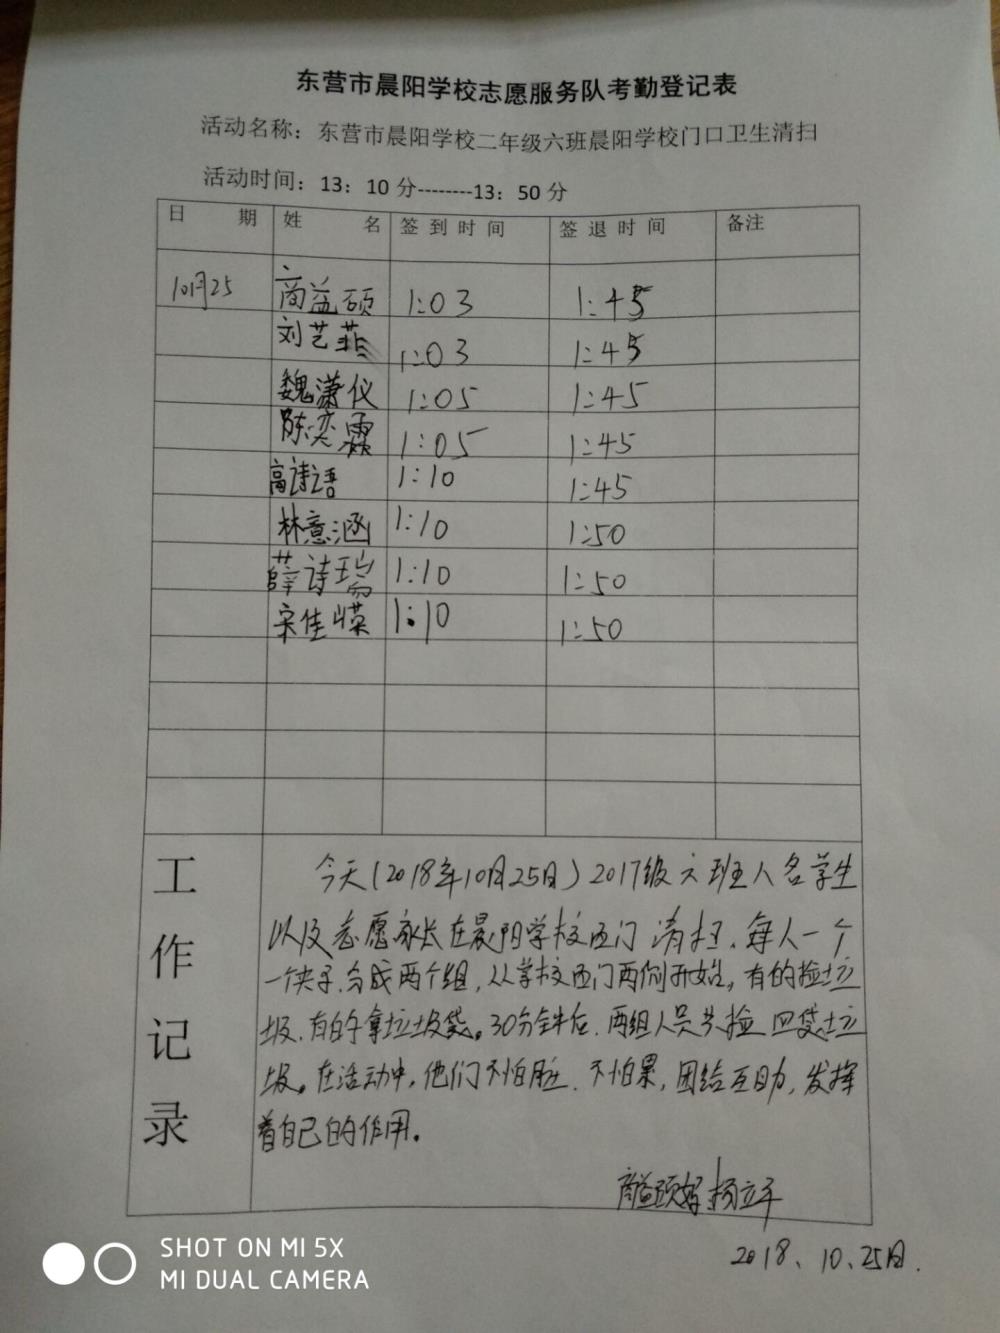 东营市晨阳学校志愿服务队考勤登记表
活动名称：东营市晨阳学校二年级六班晨阳学校门口卫生清扫
活动时间：13：10分--------13：50分
日 期 姓 名 签到时间 签退时间 备注
10月25 商益硕 1:03 1:45
刘艺菲 1:03 1:45
魏潇仪 1:05 1:45
陈奕霖 1:05 1:45
高诗语 1:10 1:45
林意涵 1:10 1:50
薛诗瑞 1:10 1:50
宋佳嵘 1:10 1:50
工作记录
今天(2018年10月25日)2017级六班八名学生
以及志愿家长在晨阳学校西门清扫.每人一个
一个夹子.分成两个组,从学校西门两侧开始,有的捡垃
圾.有的拿垃圾袋。30分钟后.两组人员共捡四袋垃
圾。在活动中,他们不怕脏.不怕累,团结互助,发挥
着自己的作用。
商益硕妈 杨立平
2018、10、25日.
SHOT ON MI 5X
MI DUAL CAMERA